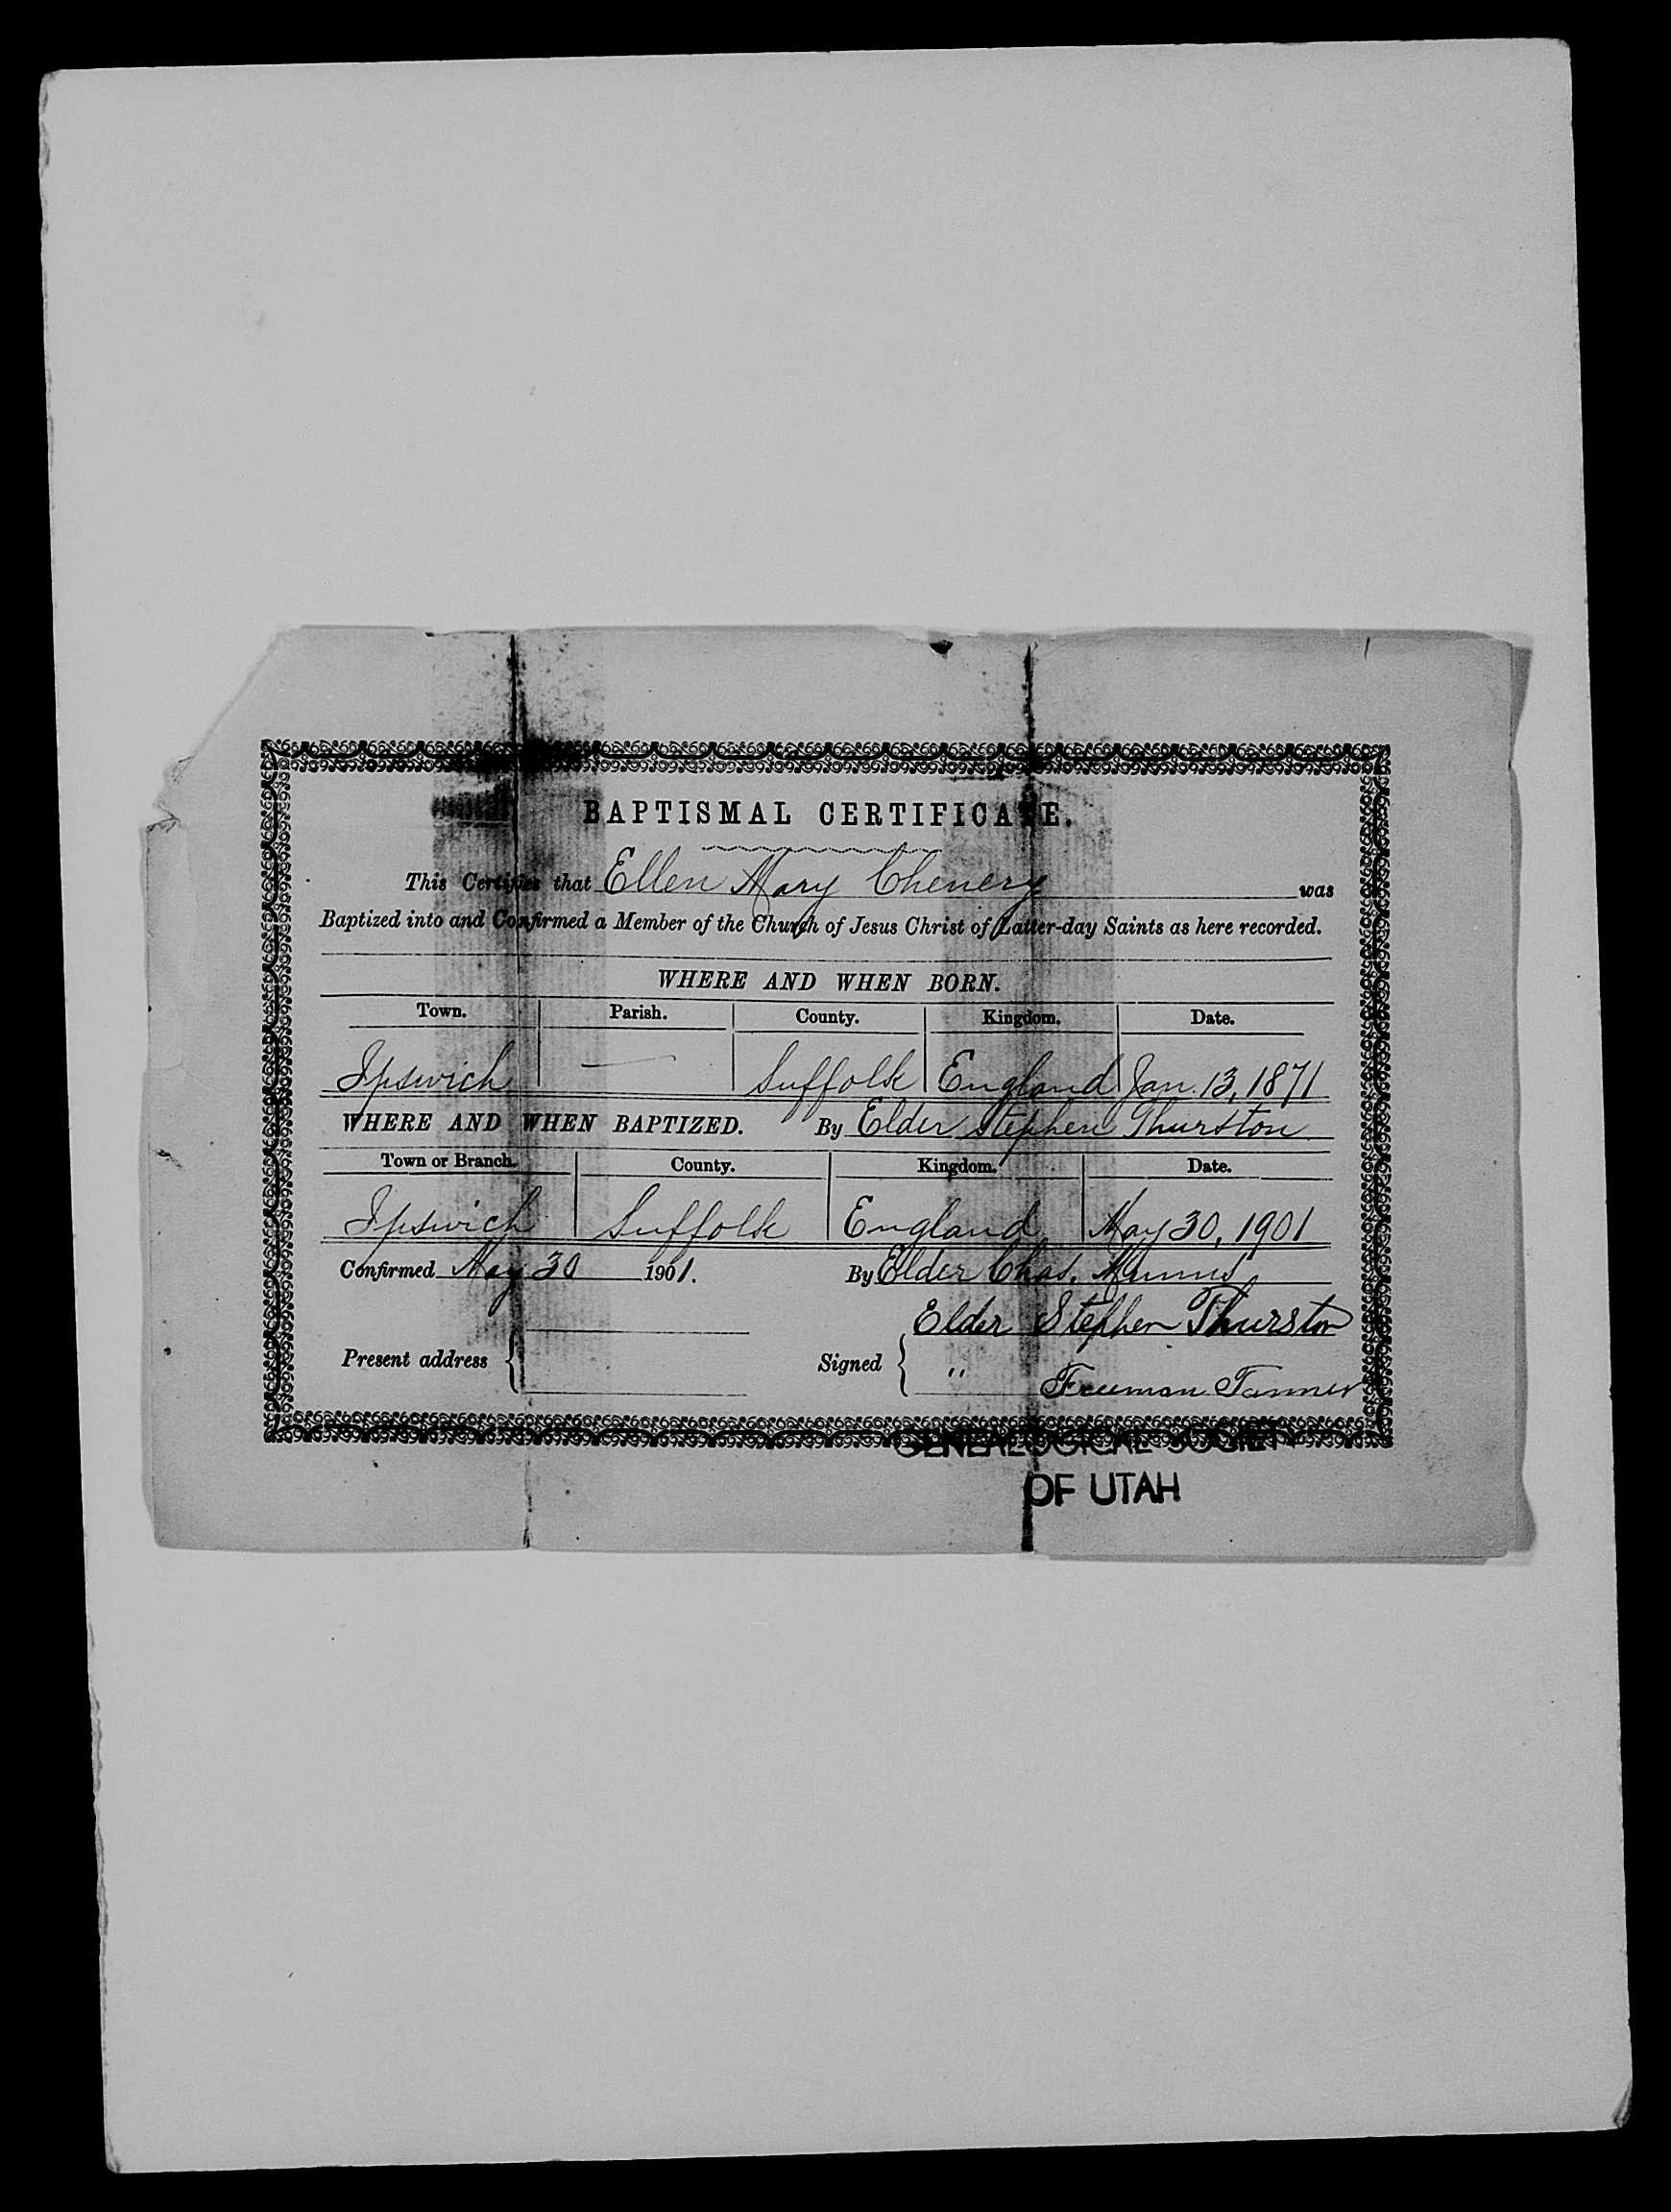 BAPTISMAL CERTIFICATE.
This Certifies that Ellen Mary Chenery was
Baptized into and Confirmed a Member of the Church of Jesus Christ of Latter-day Saints as here recorded.
WHERE AND WHEN BORN.
Town. Parish. County. Kingdom. Date.
Ipswich — Suffolk England Jan. 13, 1871
WHERE AND WHEN BAPTIZED. By Elder Stephen Thurston
Town or Branch. County. Kingdom. Date.
Ipswich Suffolk England May 30, 1901
Confirmed May 30 1901. By Elder Chas.
Elder Stephen Thurston
Present address Signed
" Freeman Tanner
GENEALOGICAL SOCIETY
OF UTAH